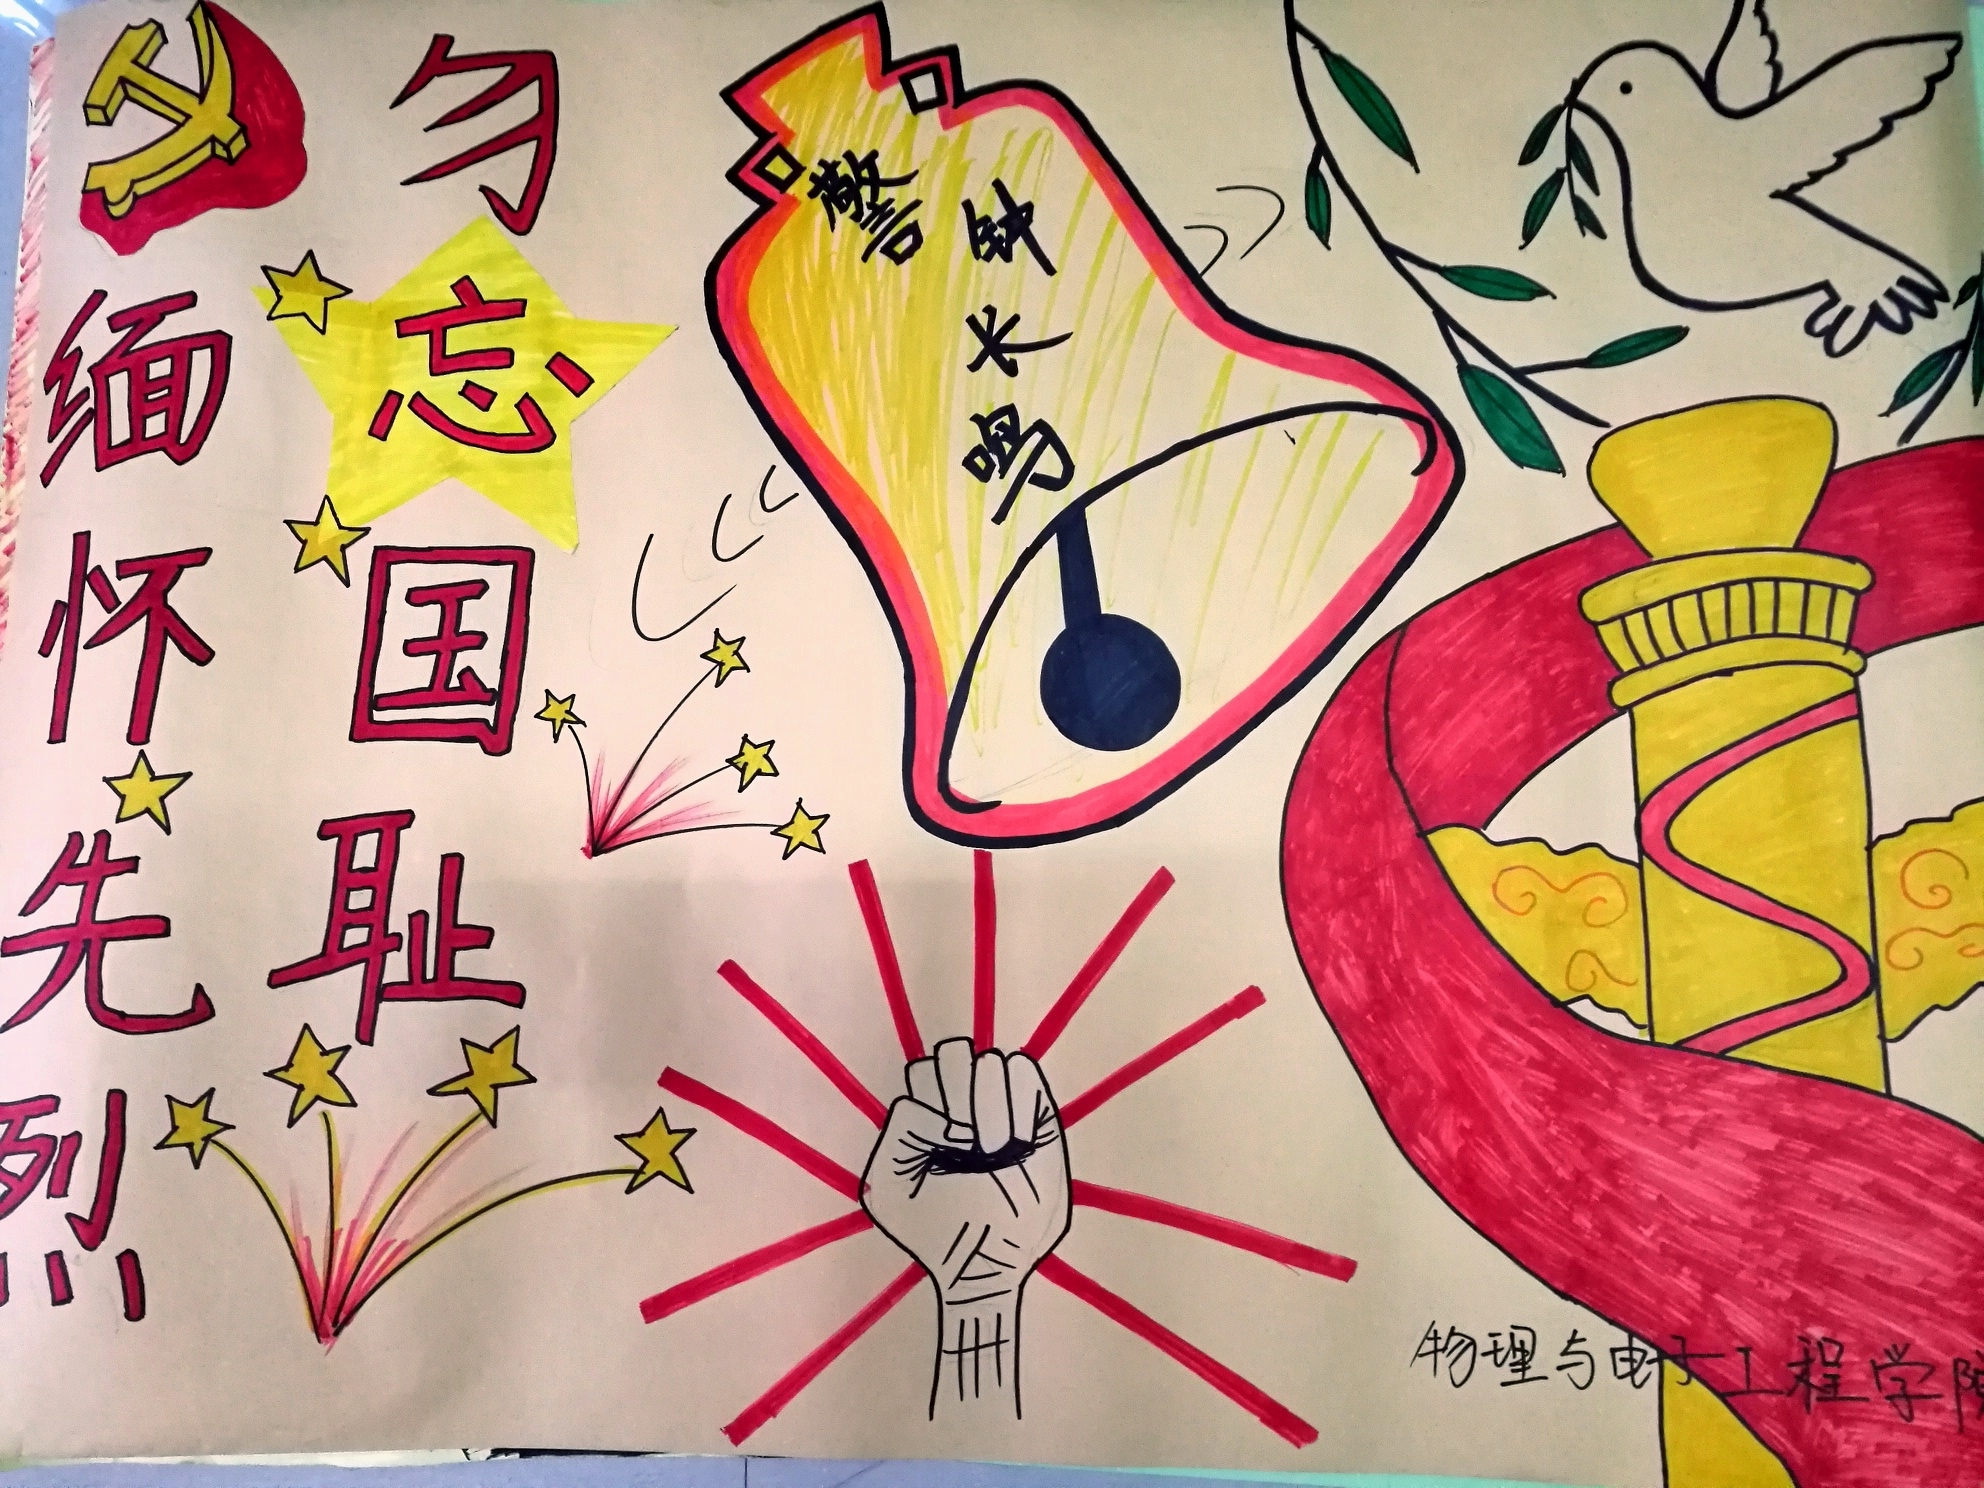 勿忘国耻
缅怀先烈
警钟长鸣
物理与电子工程学院